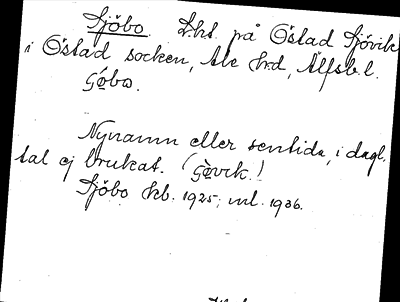 Sjöbo. Lht. på Östad Sjövik
i Östad socken, Ale hrd, Älfsb. l.
Şǿbo.
Nynamn eller sentida, i dagl.
tal ej brukat. (Şǿvik!)
Sjöbo kb. 1925; ml. 1936.